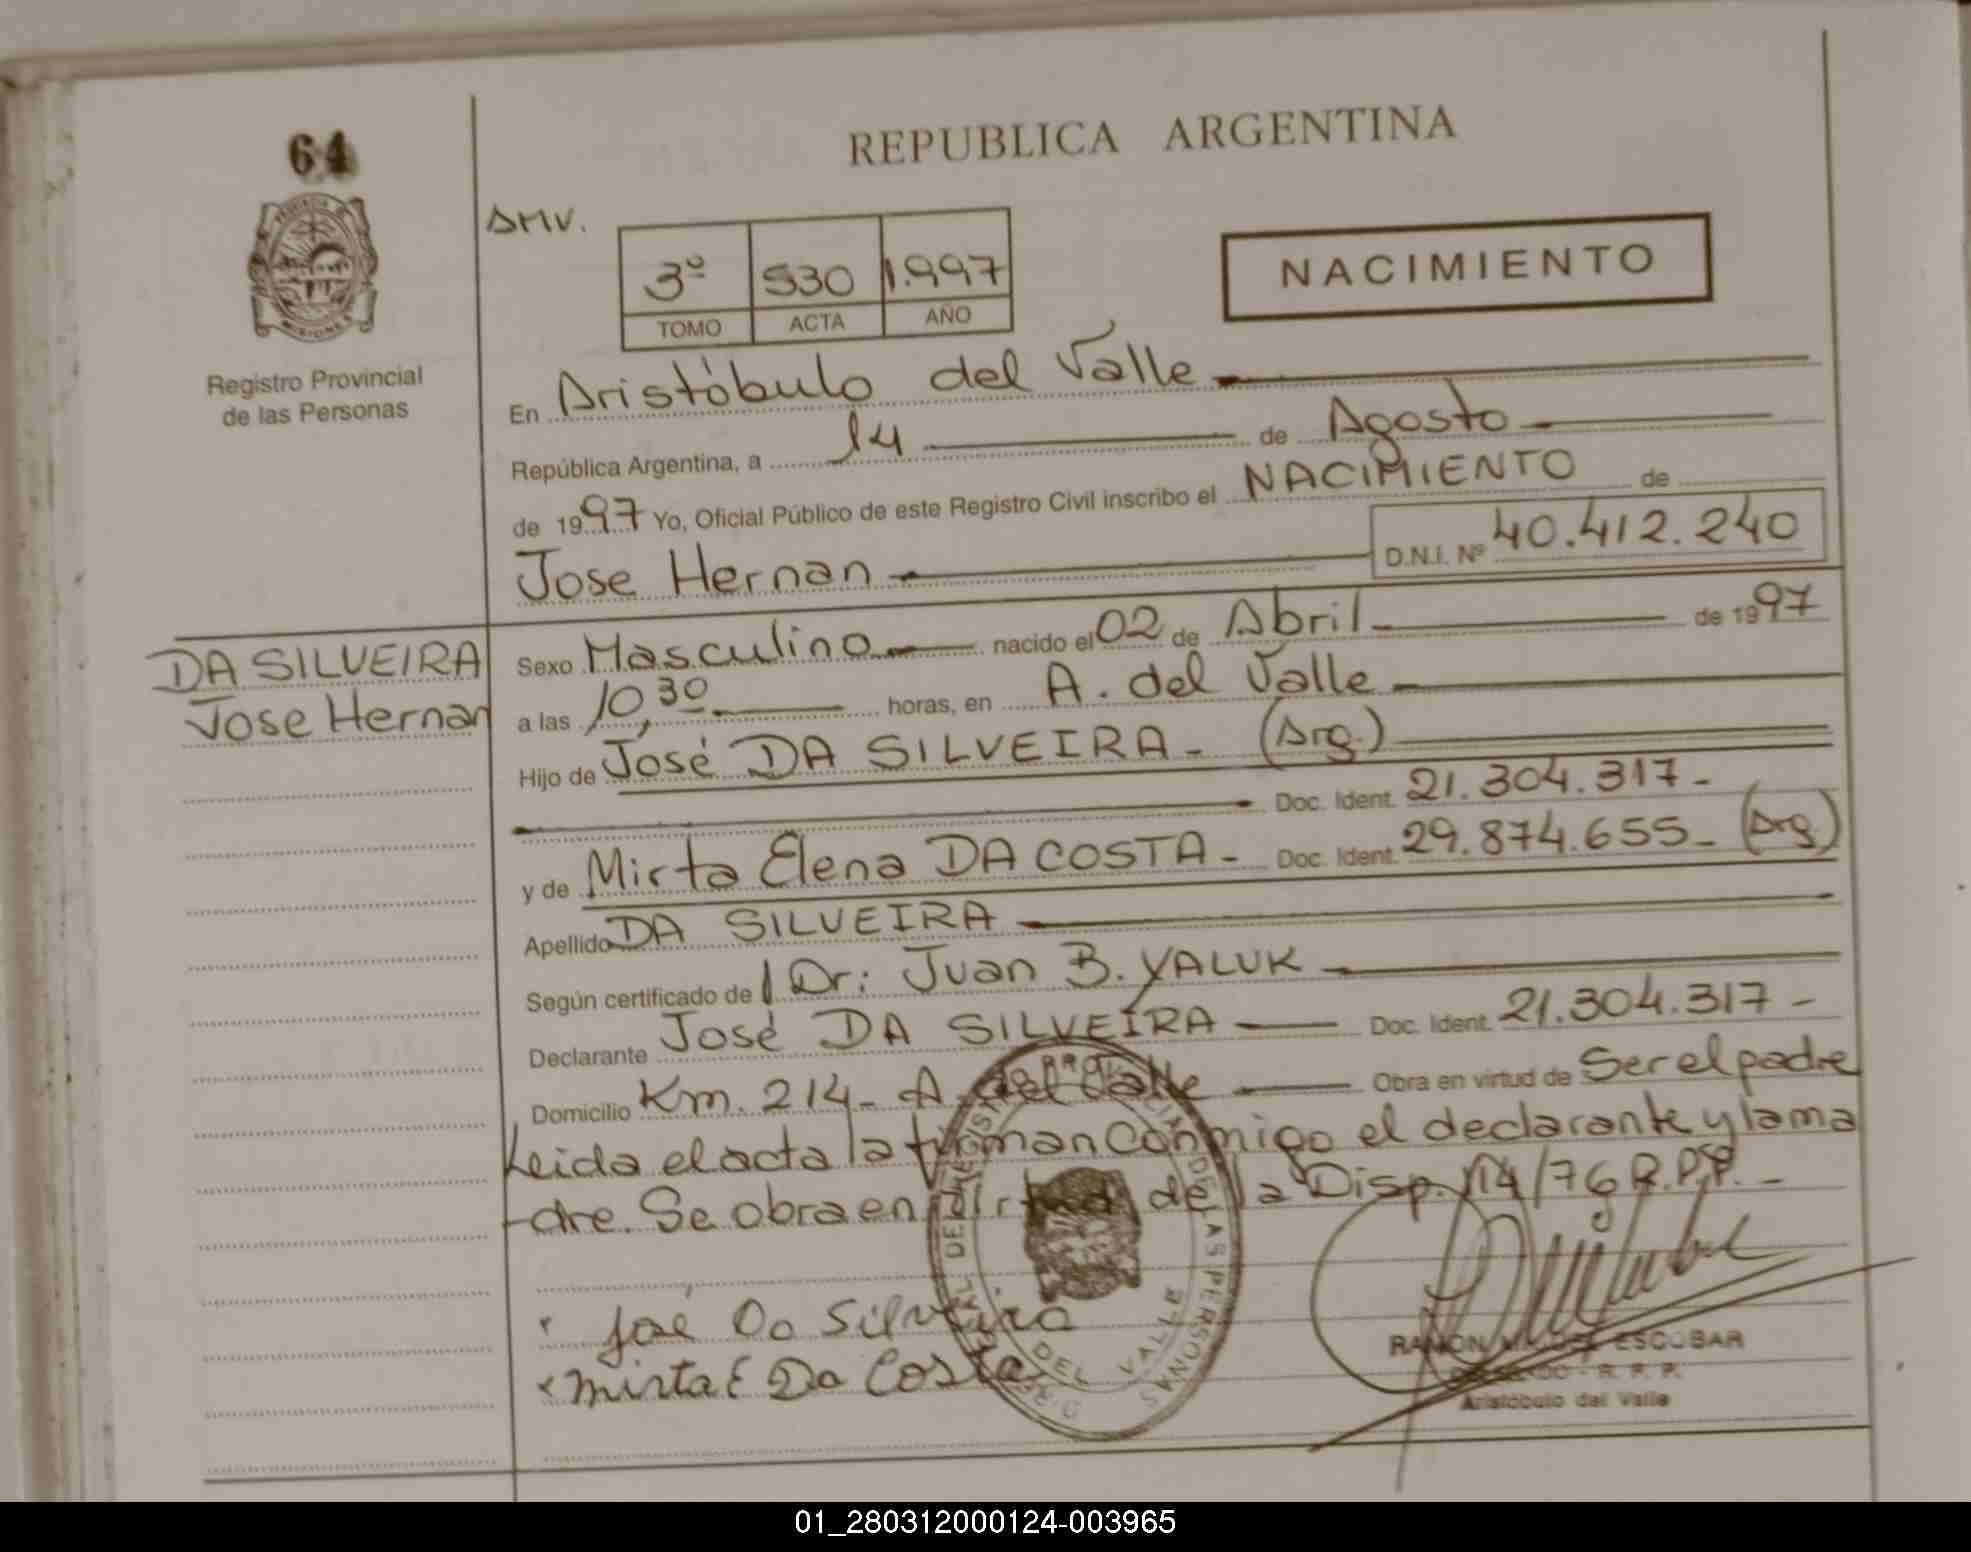 64
REPUBLICA ARGENTINA
AMV.
3º 530 1.997
TOMO ACTA AÑO
NACIMIENTO
Registro Provincial
de las Personas
En Aristóbulo del Valle
República Argentina, a 14 de Agosto
de 1997 Yo, Oficial Público de este Registro Civil inscribo el NACIMIENTO de
Jose Hernan D.N.I. Nº 40.412.240
DA SILVEIRA
Jose Hernan
Sexo Masculino nacido el 02 de Abril de 1997
a las 10,30 horas, en A. del Valle
Hijo de José DA SILVEIRA - (Arg.)
Doc. Ident. 21.304.317-
y de Mirta Elena DA COSTA - Doc. Ident. 29.874.655- (Arg.)
Apellido DA SILVEIRA
Según certificado de Dr: Juan B. YALUK
Declarante José DA SILVEIRA Doc. Ident. 21.304.317-
Domicilio Km. 214- A. del Valle Obra en virtud de Ser el padre
Leida el acta la firman conmigo el declarante y la ma
dre. Se obra en virtud de la Disp. 114/76 R.P.P. -
José Da Silveira
Mirta E Da Costa
DEL VALLE
DE LAS PERSONAS
RAMON MIGUEL ESCOBAR
R. P. P.
Aristóbulo del Valle
01_280312000124-003965